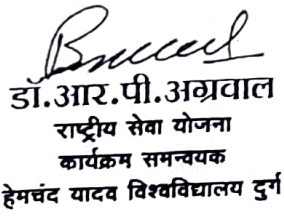 डॉ.आर.पी.अग्रवाल
राष्ट्रीय सेवा योजना
कार्यक्रम समन्वयक
हेमचंद यादव विश्वविद्यालय दुर्ग